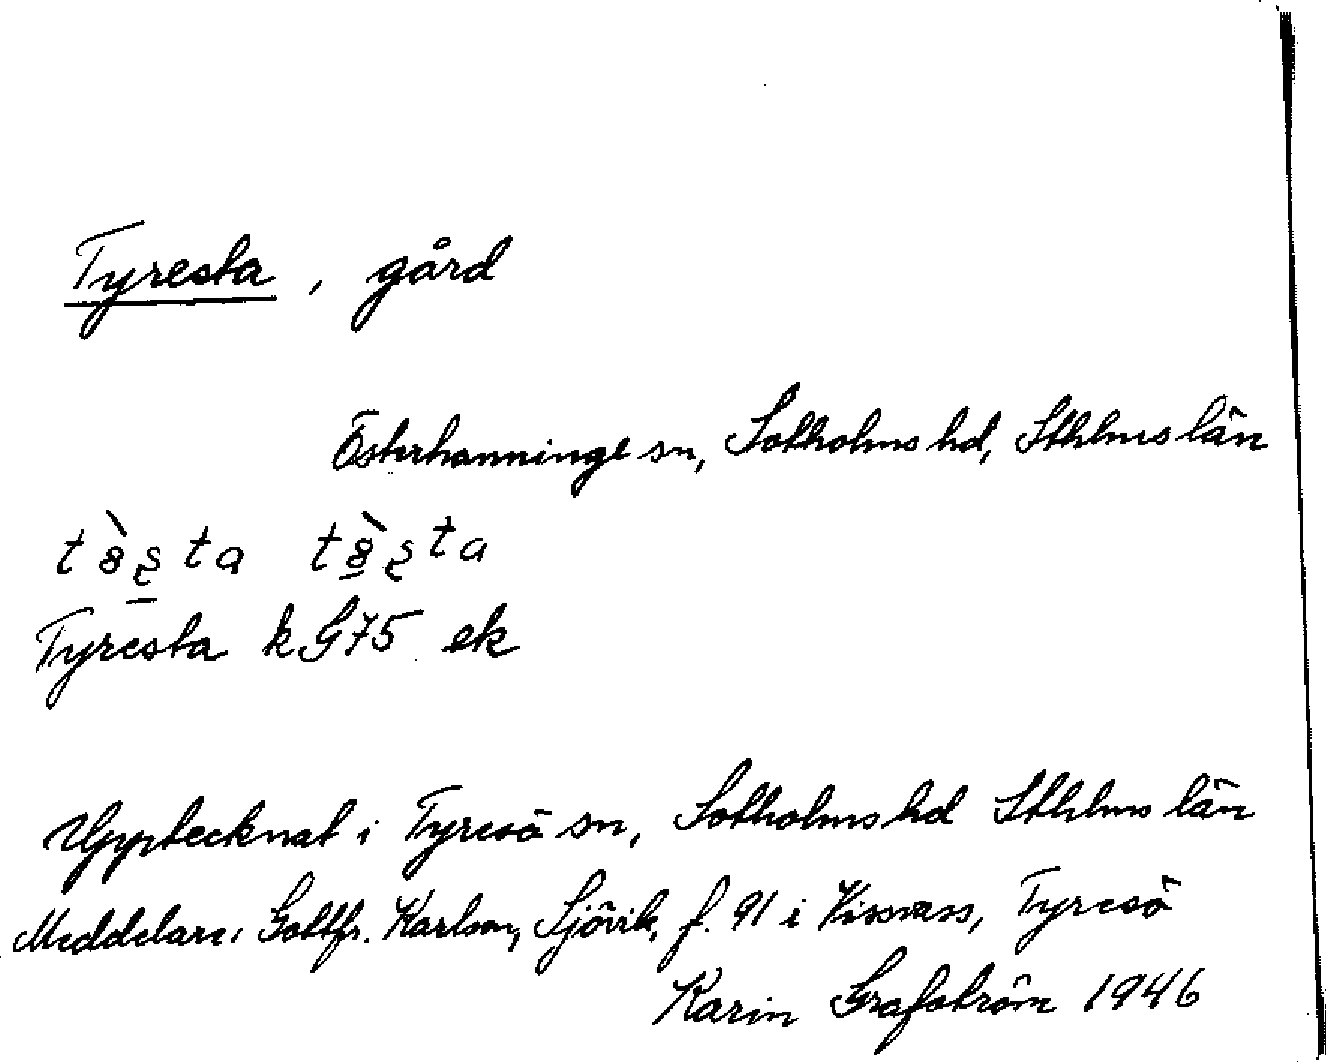 Tyresta, gård
Österhanninge sn, Sotholms hd, Sthlms län
Tyresta k G75 ek
Upptecknat i Tyresö sn, Sotholms hd Sthlms län
Meddelare: Gottfr. Karlson, Sjövik, f. 91 i Kissvass, Tyresö
Karin Grafström 1946